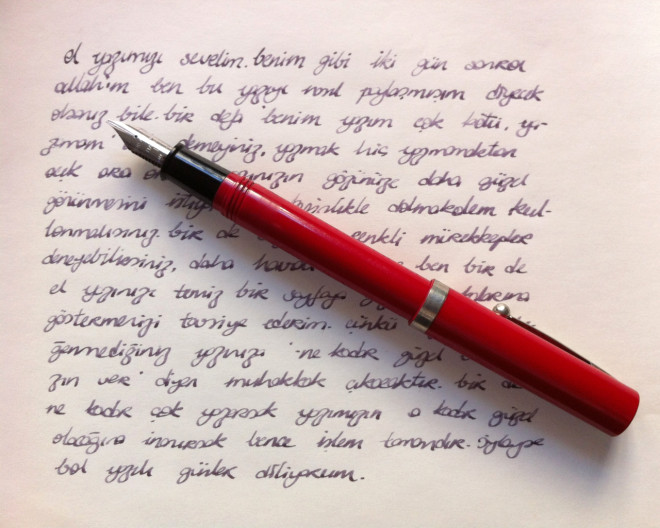 el yazımızı sevelim. benim gibi iki gün sonra
allahım ben bu yazıyı nasıl paylaşmışım diyecek
olsanız bile. bir defa benim yazım çok kötü, ya-
zamam demeyiniz, yazmak hiç yazmamaktan
açık ara gözünüze daha güzel
görünmesini dolmakalem kul-
lanmalısınız. bir de renkli mürekkepler
deneyebilirsiniz, daha ben bir de
el yazınızı temiz bir sayfaya
göstermenizi tavsiye ederim. çünkü
ğenmediğiniz yazınızı "ne kadar güzel
zın var" diyen muhakkak çıkacaktır. bir de
ne kadar çok yazarsak yazımızın o kadar güzel
olacağına inanırsak bence işlem tamamdır. öyleyse
bol yazılı günler diliyorum.